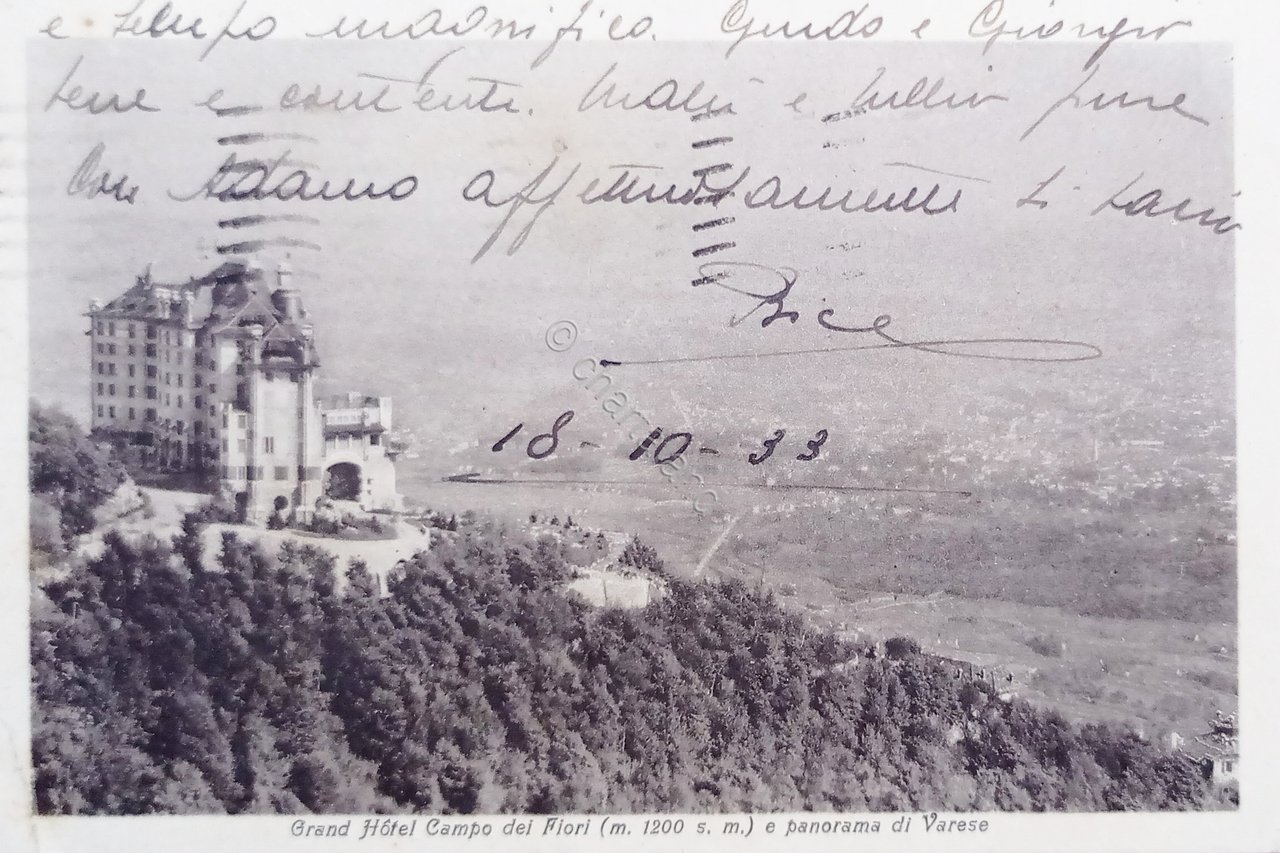 e tempo magnifico. Guido e Giorgio
bene e contenti. e Tullio pure
Con Adamo affettuosamente ti bacio
Bice
18-10-33
© chart
Grand Hôtel Campo dei Fiori (m. 1200 s. m.) e panorama di Varese